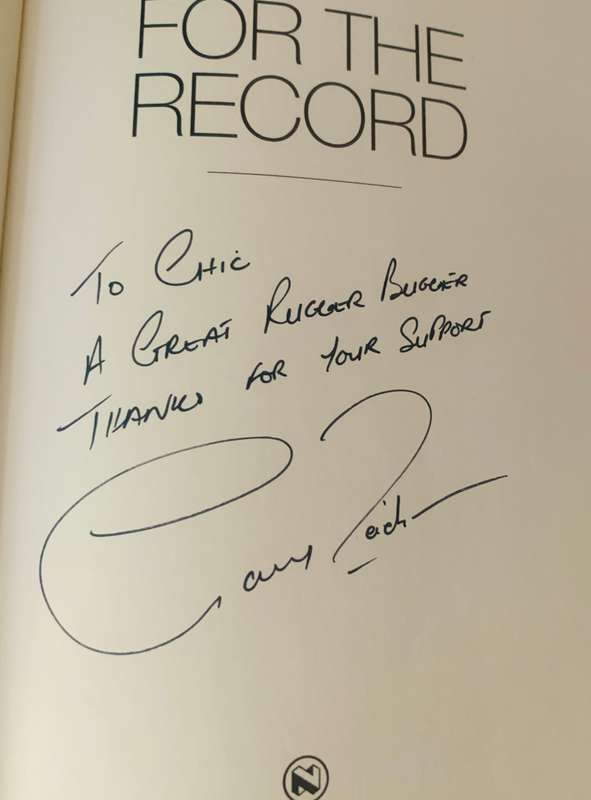 FOR THE
RECORD
TO CHIC
A GREAT RUGGER BUGGER
THANKS FOR YOUR SUPPORT
N